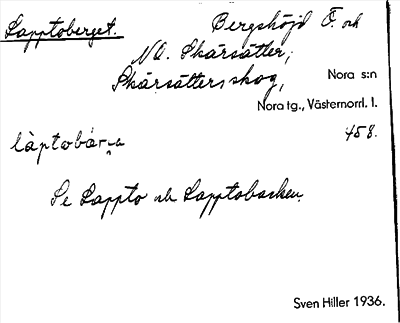 Lapptoberget. Bergshöjd O. och
NO. Skärsätter;
Skärsätters skog, Nora s:n
Nora tg., Västernorrl. l.
458.
Se Lappto och Lapptobacken.
Sven Hiller 1936.